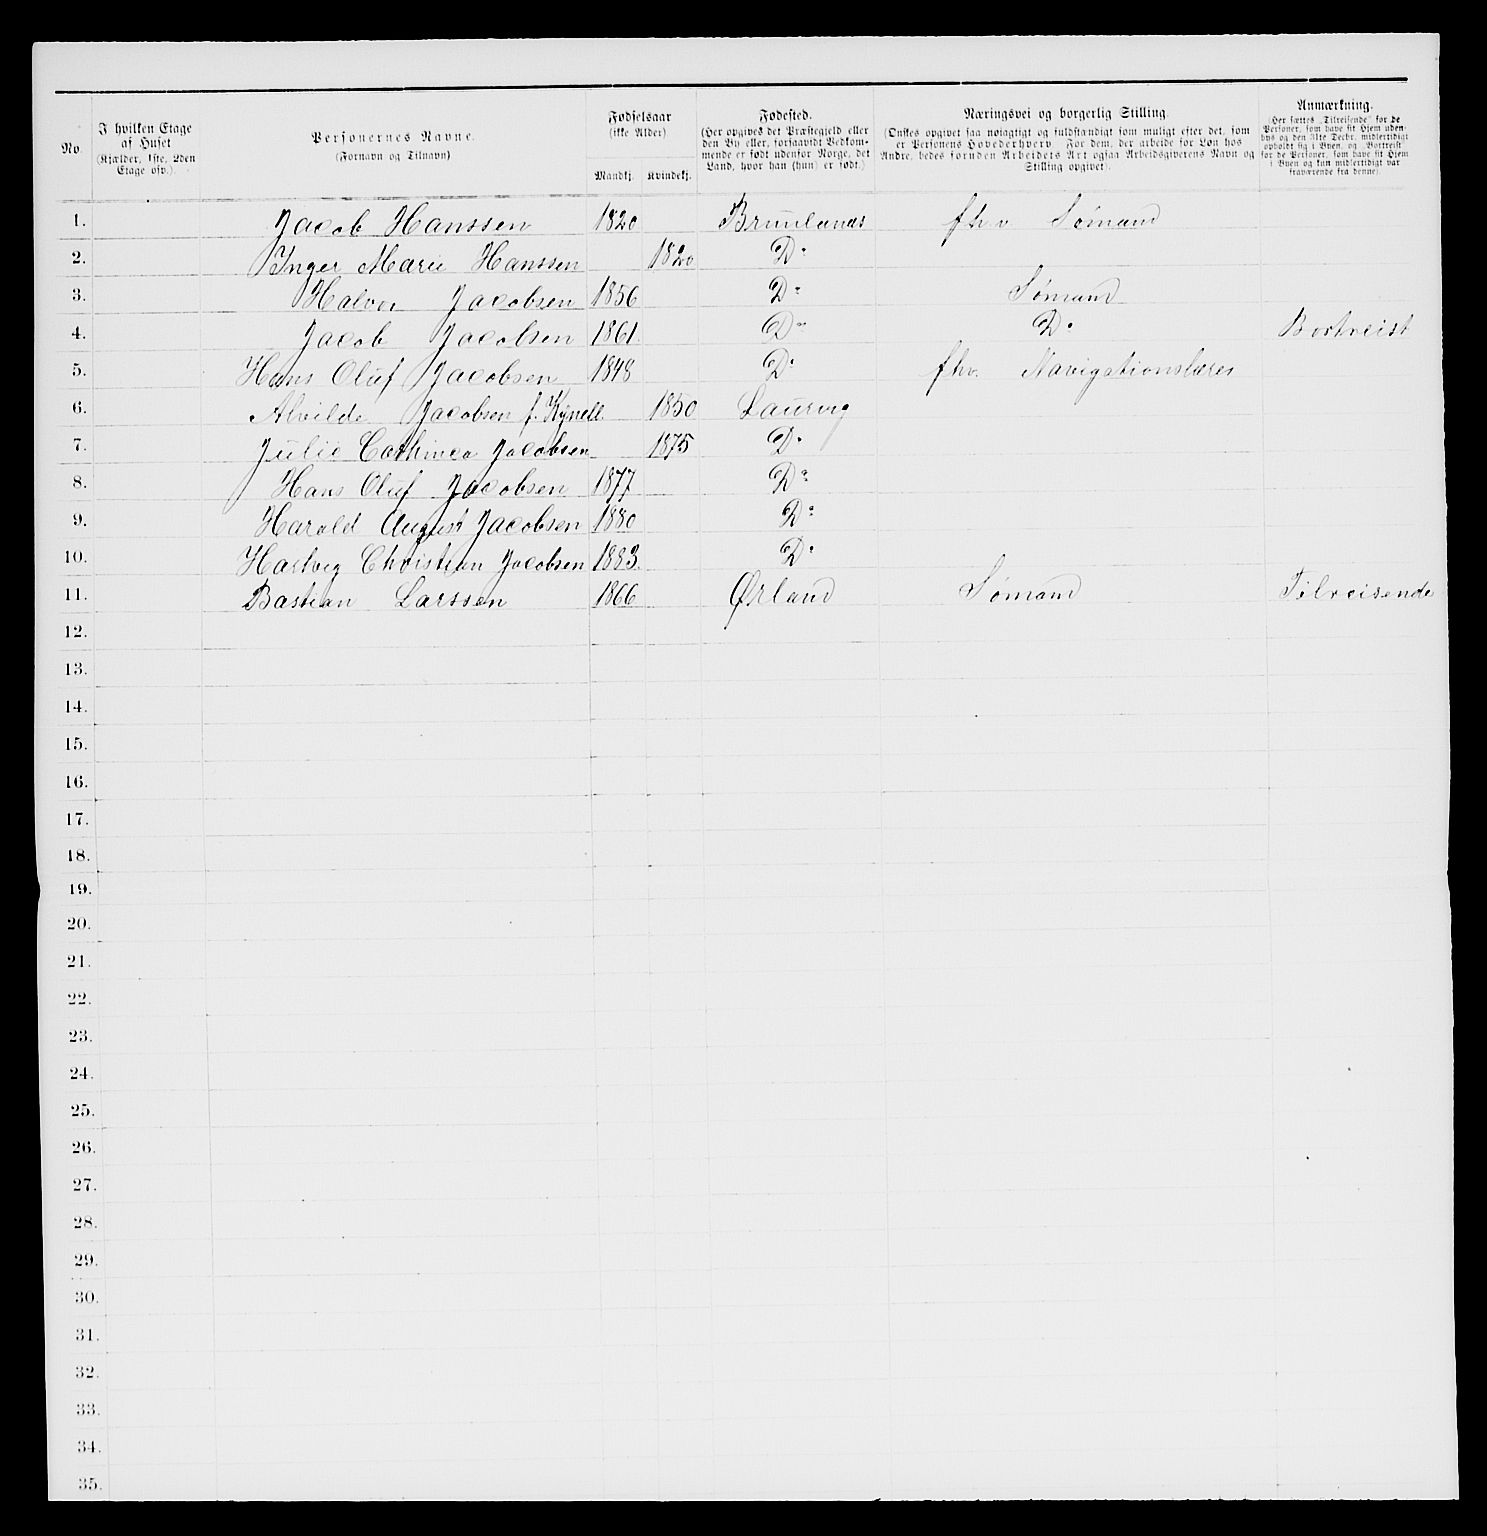 No.
I hvilken Etage af Huset (Kjælder, 1ste, 2den Etage osv.).
Personernes Navne. (Fornavn og Tilnavn)
Fødselsaar (ikke Alder) Mandkj. Kvindekj.
Fødested. (Her opgives det Præstegjeld eller den By eller, forsaavidt Vedkommende er født udenfor Norge, det Land, hvor han (hun) er født.)
Næringsvei og borgerlig Stilling. (Ønskes opgivet saa nøiagtigt og fuldstændigt som muligt efter det, som er Personens Hovederhverv. For dem, der arbeide for Løn hos Andre, bedes foruden Arbeidets Art ogsaa Arbeidsgiverens Navn og Stilling opgivet).
Anmærkning. (Her sættes „Tilreisende" for de Personer, som have sit Hjem udenbys og den 31te Decbr. midlertidigt opholdt sig i Byen, og „Bortreist" for de Personer, som have sit Hjem i Byen og kun midlertidigt var fraværende fra denne).
1. Jacob Hanssen 1820 Brunlanæs fhv. Sømand
2. Inger Marie Hanssen 1820 Do
3. Halvor Jacobsen 1856 Do Sømand
4. Jacob Jacobsen 1861 Do Do Bortreist
5. Hans Oluf Jacobsen 1848 Do fhv. Navigationslærer
6. Alvilde Jacobsen f. Kynell 1850 Laurvig
7. Julie Cathinca Jacobsen 1875 Do
8. Hans Oluf Jacobsen 1877 Do
9. Harald August Jacobsen 1880 Do
10. Hartvig Christian Jacobsen 1883 Do
11. Bastian Larssen 1866 Ørland Sømand Tilreisende
12.
13.
14.
15.
16.
17.
18.
19.
20.
21.
22.
23.
24.
25.
26.
27.
28.
29.
30.
31.
32.
33.
34.
35.